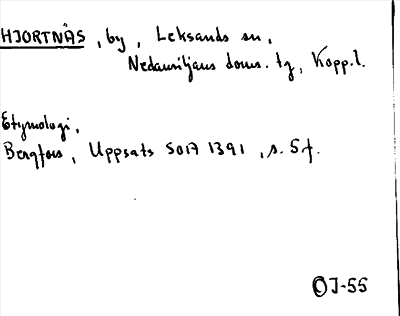 HJORTNÄS, by, Leksands sn,
Nedansiljans doms. tg, Kopp.l.
Etymologi,
Bergfors, Uppsats SOIA 1391, s. 5f.
OJ-55